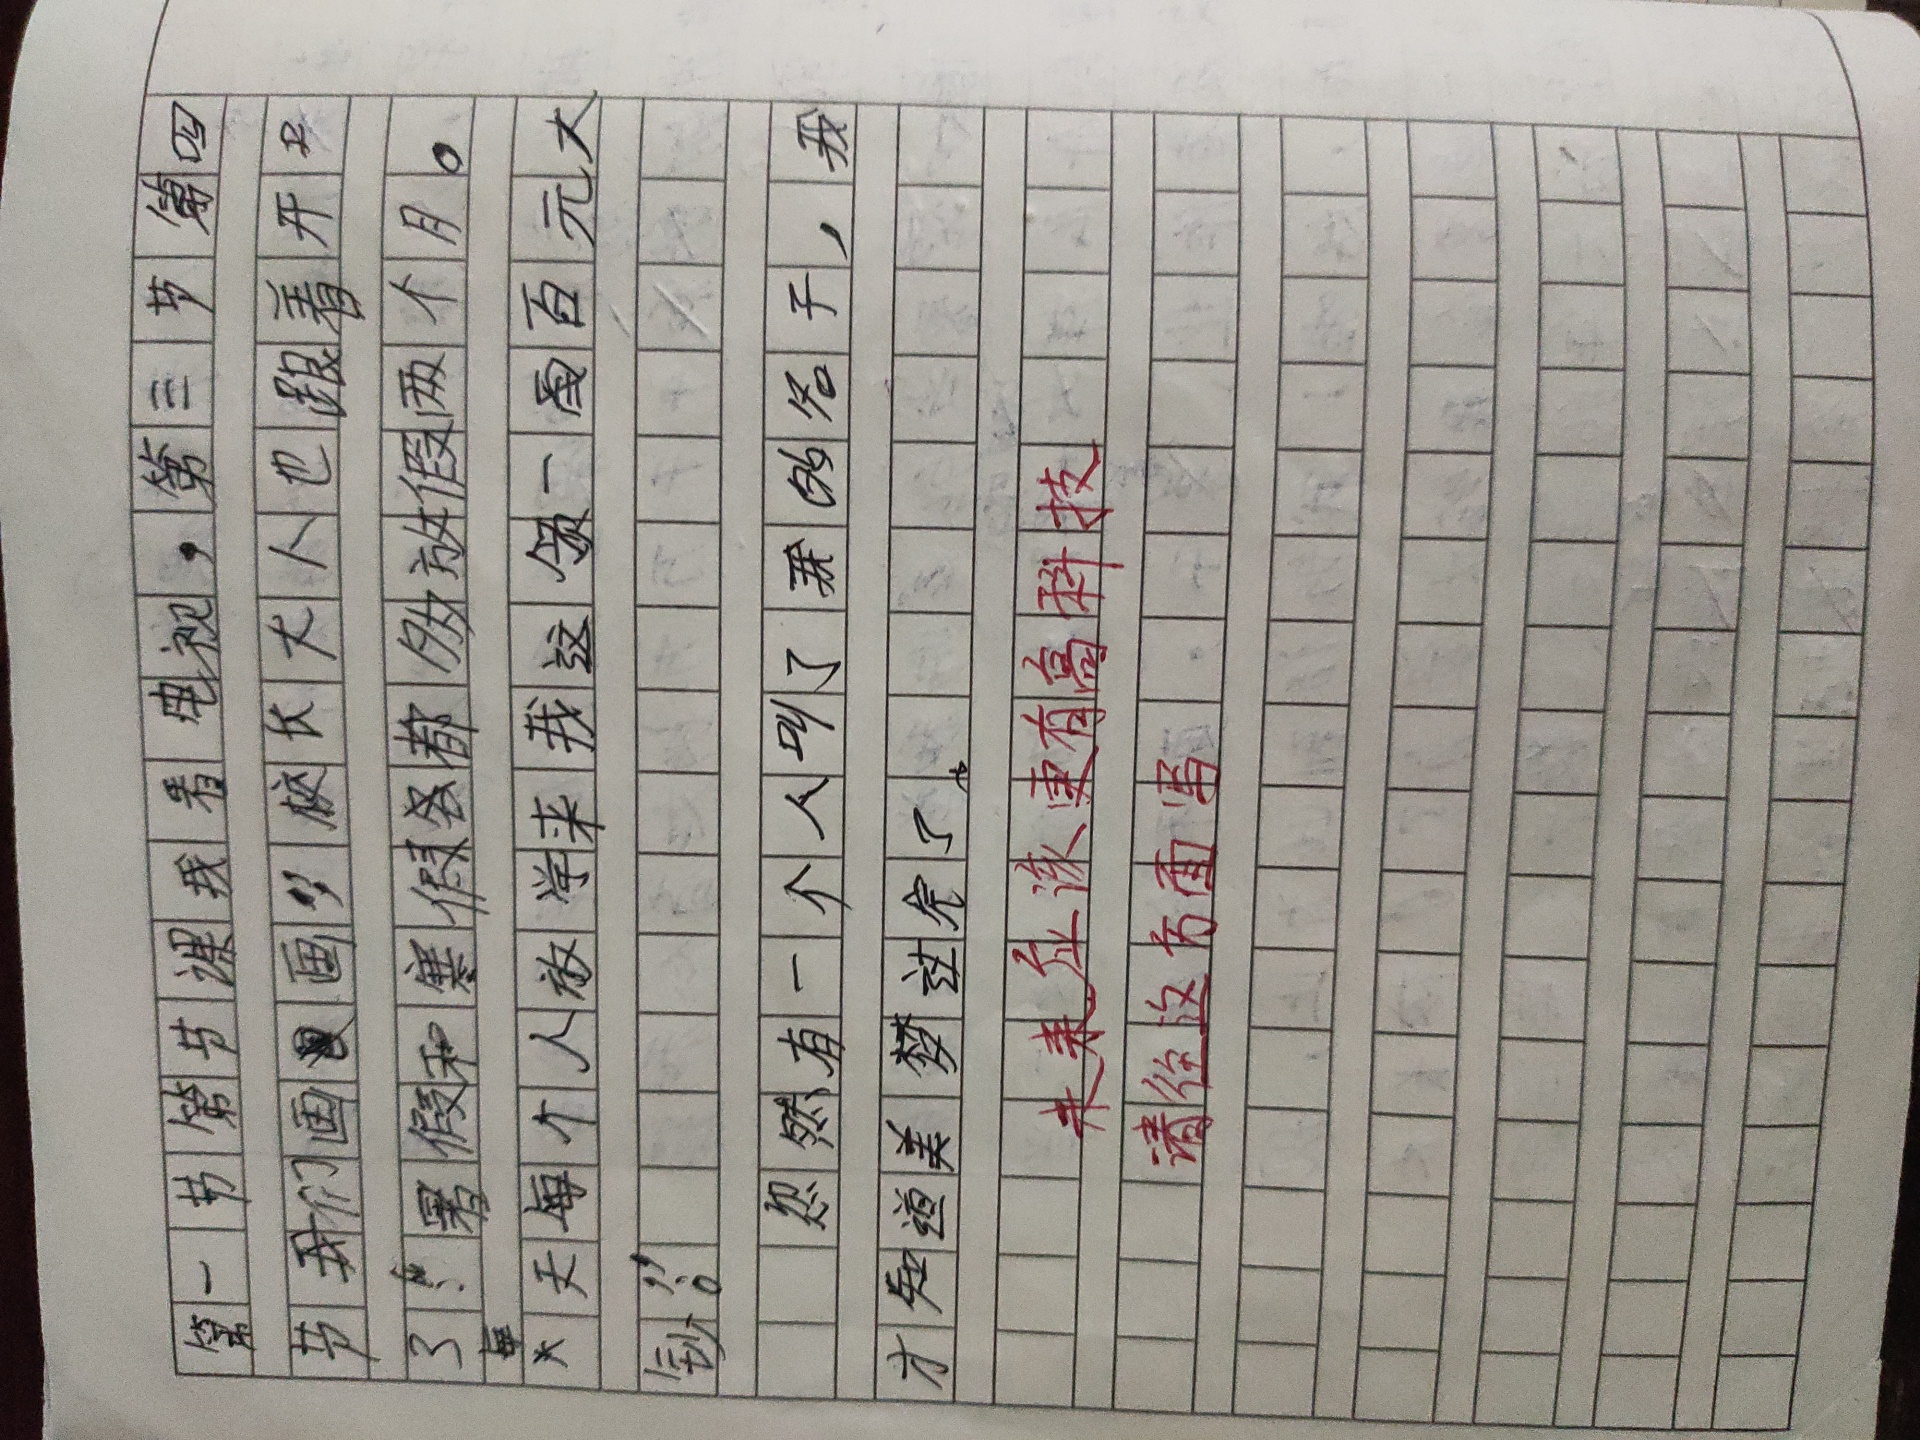 第一节节第节课我看电视，第三节第四
节我们画画”校长大人也跟着开
了！暑假和寒假各都多放假两个月。
每天每个人放学来我这领一百元大
钞”。
忽然有一个人叫了我的名子，我
才知道美梦过完了。
未来应该更有高科技
请往这方面写